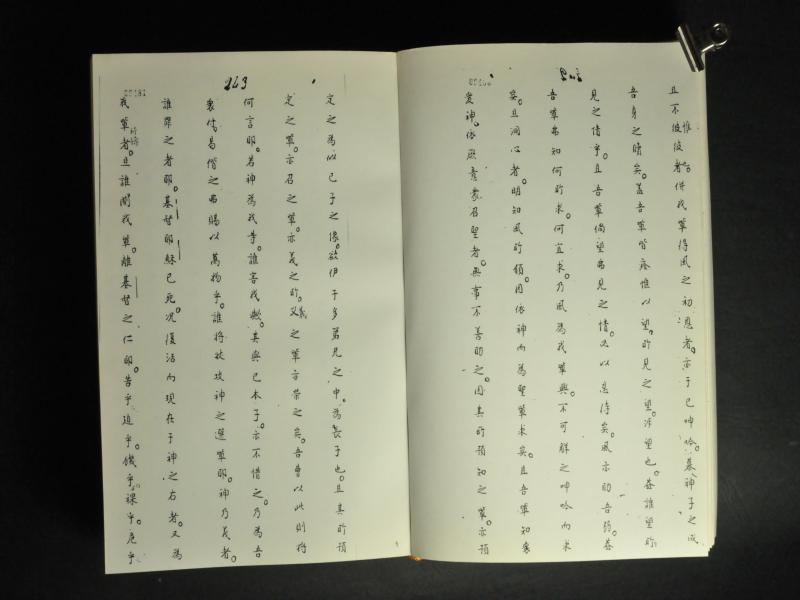 惟
且不彼彼者併我輩得風之初恩者亦于已呻吟慕神子之成
吾身之贖矣。蓋吾輩皆㡳惟以望。所見之望。非望也。蓋誰望所
見之情乎。且吾輩倘望弗見之情。必以忍待矣。風亦助吾弱。蓋
吾輩弗知何所求。何宜求。乃風為我輩與不可解之呻吟而求
矣。且洞心者。明知風所領。因依神而為聖輩求矣。且吾輩知衆
愛神。依厥意衆召聖者。無事不善助之。因其所預知之輩。亦預
243
定之為似己子之像。欲伊于多弟兄之中。為長子也。且其所預
定之輩。亦召之輩。亦義之。所義之輩亦榮之矣。吾曹以此則將
何言耶。若神為我等。誰害我歟。其與己本子。亦不惜之。乃為吾
衆付。曷偕之弗賜以萬物乎。誰將狀攻神之選輩耶。神乃義者。
誰罪之者耶。基督耶穌已死。况復活而現在于神之右者。又為
我輩
祈求
者。且誰間我輩。離基督之仁耶。苦乎。迫乎。饑乎。裸乎。危乎